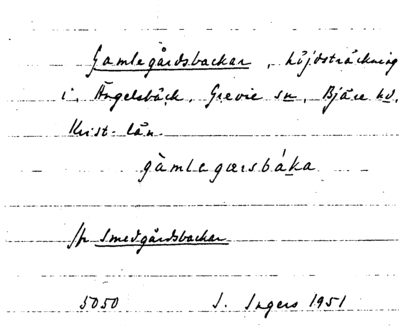 Gamlegårdsbackar, höjdsträckning
i Ängelsbäck, Grevie sn, Bjäre hd,
Krist. län.
gàmlagarsbáka
Smedgårdsbackar
5050 I. Ingers 1951